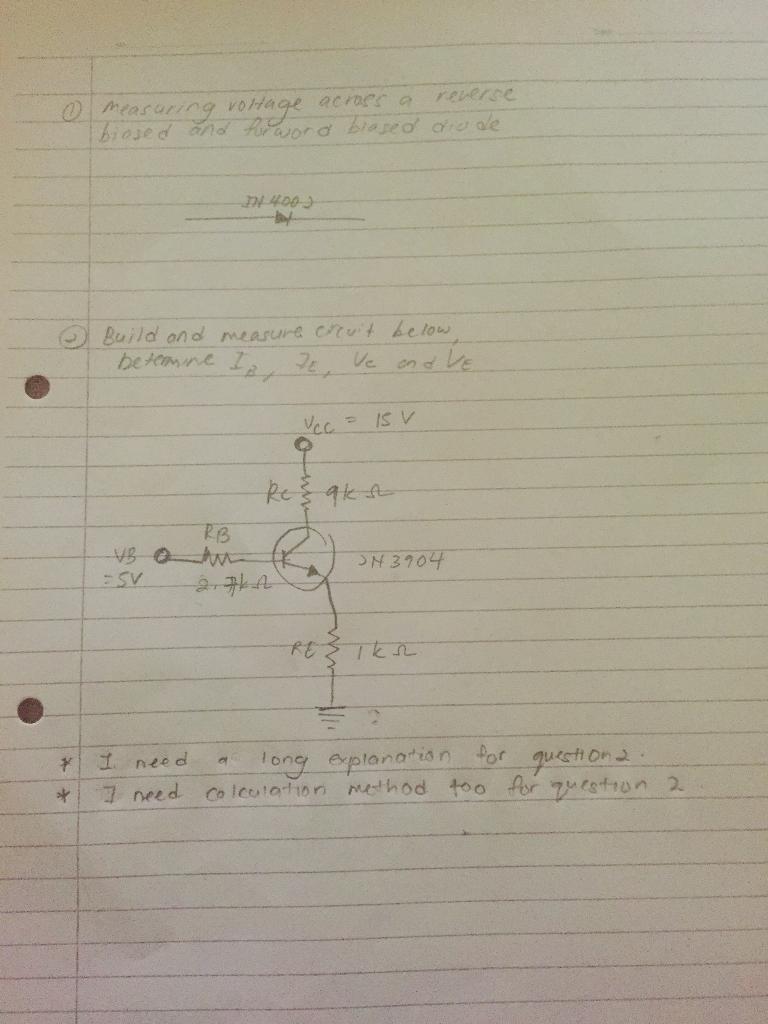 ① Measuring voltage across a reverse
biased and forword biased diode
IN 4002
② Build and measure circuit below,
Determine I_B, I_E, Vc and VE
Vcc = 15 V
Rc 9k Ω
RB
VB
= 5V
2.7k Ω
2N 3904
RE 1k Ω
* I need a long explanation for question 2.
* I need calculation method too for question 2.